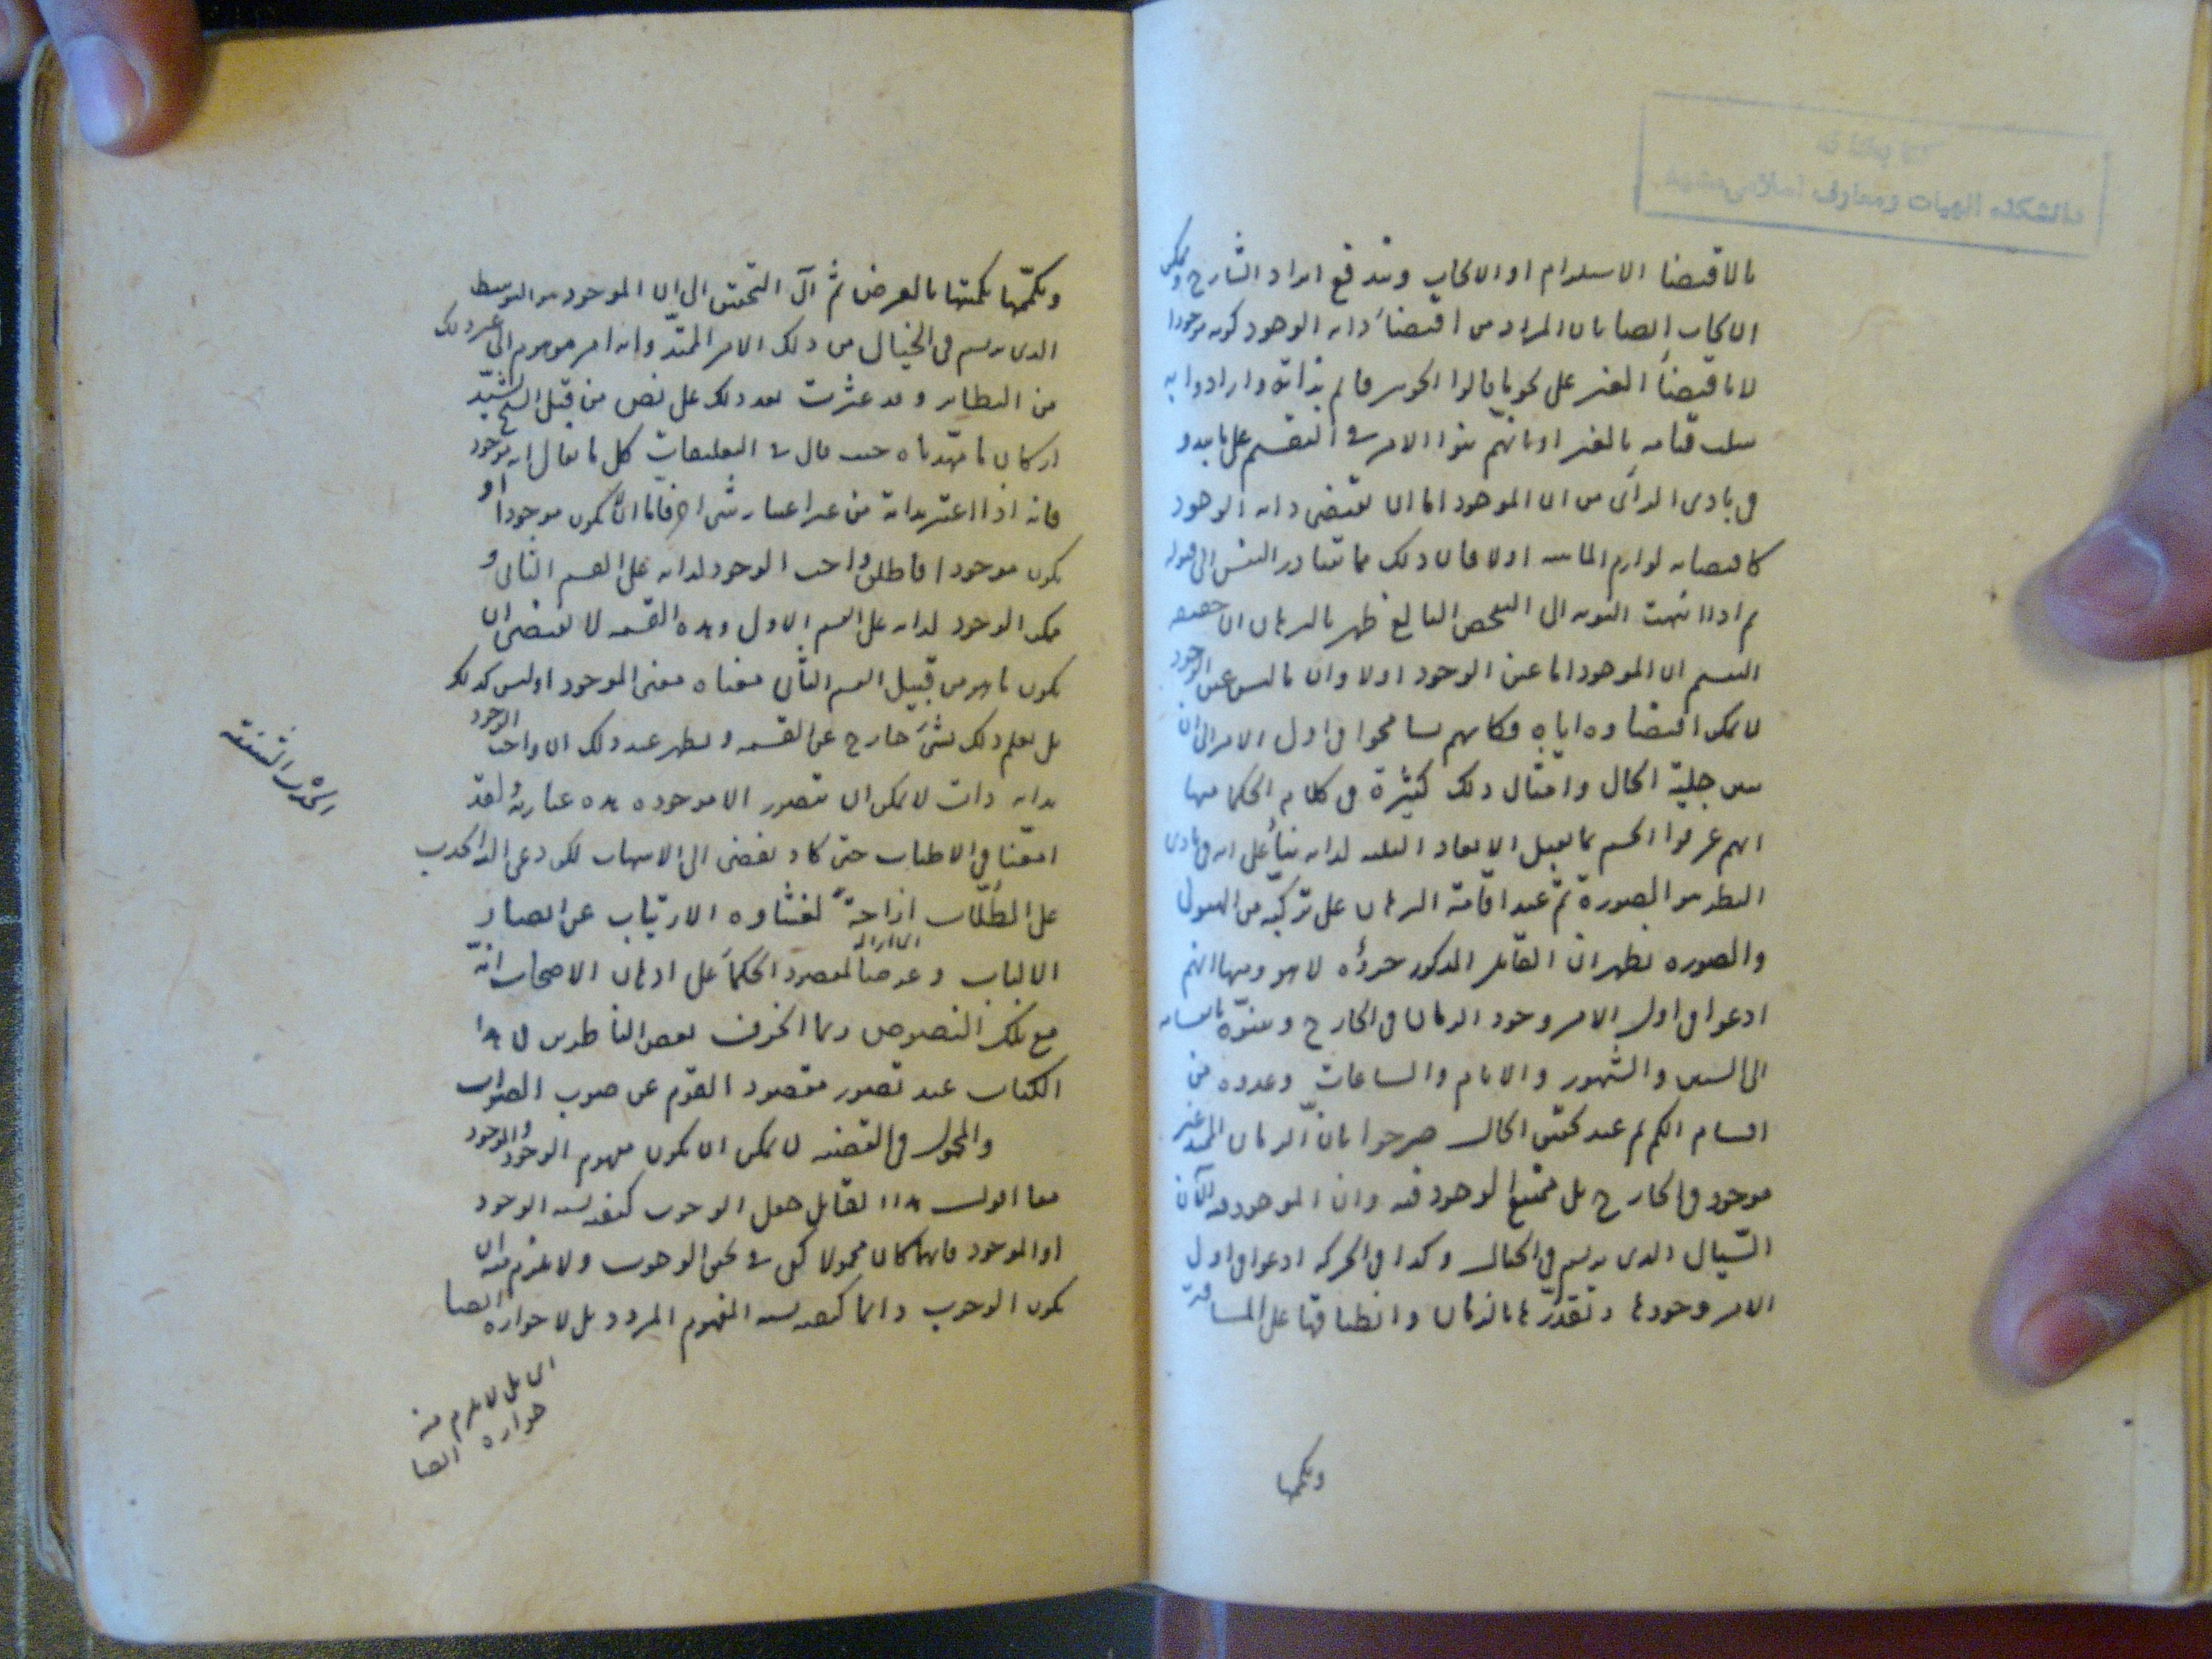 بالاقتضا الاستلزام او الايجاب ويندفع ايراد الشارح ويمكن
الايجاب ايضا بان المراد من اقتضاء ذاته الوجود كونه موجودا
لا باقتضاء الغير على نحو ما قالوا الجوهر قائم بذاته وارادوا به
سلب قيامه بالغير او بانهم بنوا الامر في التقسيم على ما يبدو
في بادى الرأى من ان الموجود اما ان يقتضى ذاته الوجود
كاقتضائه لوازم الماهية اولا فان ذلك مما يتبادر النفس الى قبوله
ثم اذا انتهت النوبه الى الفحص البالغ ظهر بالبرهان ان حقيقه
التقسيم ان الموجود اما عين الوجود اولا وان ما ليس عين الوجود
لا يمكن اقتضاوه اياه فكانهم تسامحوا في اول الامر الى ان
يتبين جلية الحال وامثال ذلك كثيرة في كلام الحكما منها
انهم عرفوا الجسم بما يقبل الابعاد الثلثه لذاته بناء على انه في بادى
النظر هو الصورة ثم عند اقامة البرهان على تركبه من الهيولى
والصوره يظهر ان القابل المذكور جزؤه لا هو ومنها انهم
ادعوا في اول الامر وجود الزمان في الخارج وبينوه بانقسامه
الى السنين والشهور والايام والساعات وعدوه من
اقسام الكم ثم عند تحقيق الحال صرحوا بان الزمان الممتد غير
موجود في الخارج بل ممتنع الوجود فيه وان الموجود منه الآن
السيال الذى يرسم في الخيال وكذا في الحركه ادعوا في اول
الامر وجودها وتقدرها بالزمان وانطباقها على المسافة
وتكممها
وتكممها بكميتها بالعرض ثم آل التحقيق الى ان الموجود هو التوسط
الذى يرسم في الخيال من ذلك الامر الممتد وانه امر موهوم الى غير ذلك
من النظاير وقد عثرت بعد ذلك على نص من قبل الشيخ يشيد
اركان ما مهدناه حيث قال في التعليقات كل ما يقال انه موجود
فانه اذا اعتبر بذاته من غير اعتبار شى اخر فاما ان لا يكون موجودا او
يكون موجودا فاطلق واجب الوجود لذاته على القسم الثانى و
ممكن الوجود لذاته على القسم الاول وهذه القسمه لا تقتضى ان
يكون ما هو من قبيل القسم الثانى معناه معنى الموجود او ليس كذلك
بل يعلم ذلك بشئ خارج عن القسمه ويظهر عند ذلك ان واجب الوجود
بذاته ذات لا يمكن ان يتصور الا موجوده هذه عبارته ولقد
امعنا في الاطناب حتى كاد يفضى الى الاسهاب لكن دعى اليه الحدب
الحدب الشفقة
على الطلاب ازاحة لغشاوه الارتياب عن ابصار
الازاله
الالباب وعرضا لمقصود الحكماء على اذهان الاصحاب انه
مع تلك النصوص ربما انحرف بعض الناظرين في هذا
الكتاب عند تصور مقصود القوم عن صوب الصواب
والمحمول في القضيه لا يمكن ان يكون مفهوم الوجود والموجود
معا اقول هذا القايل جعل الوجوب كيفيه نسبه الوجود
او الموجود فايهما كان محمولا كفى في تحقق الوجوب ولا يلزم منه ان
يكون الوجوب دائما كيفيه نسبه المفهوم المردد بل لا جوازه ايضا
اى بل لا يلزم منه
جوازه ايضا